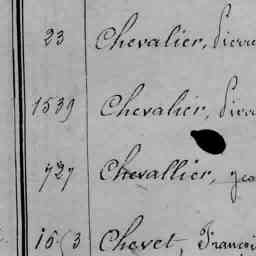 23 Chevalier, Pierre
1539 Chevalier, Pierre
727 Chevallier, Jea
Chevet, Franço